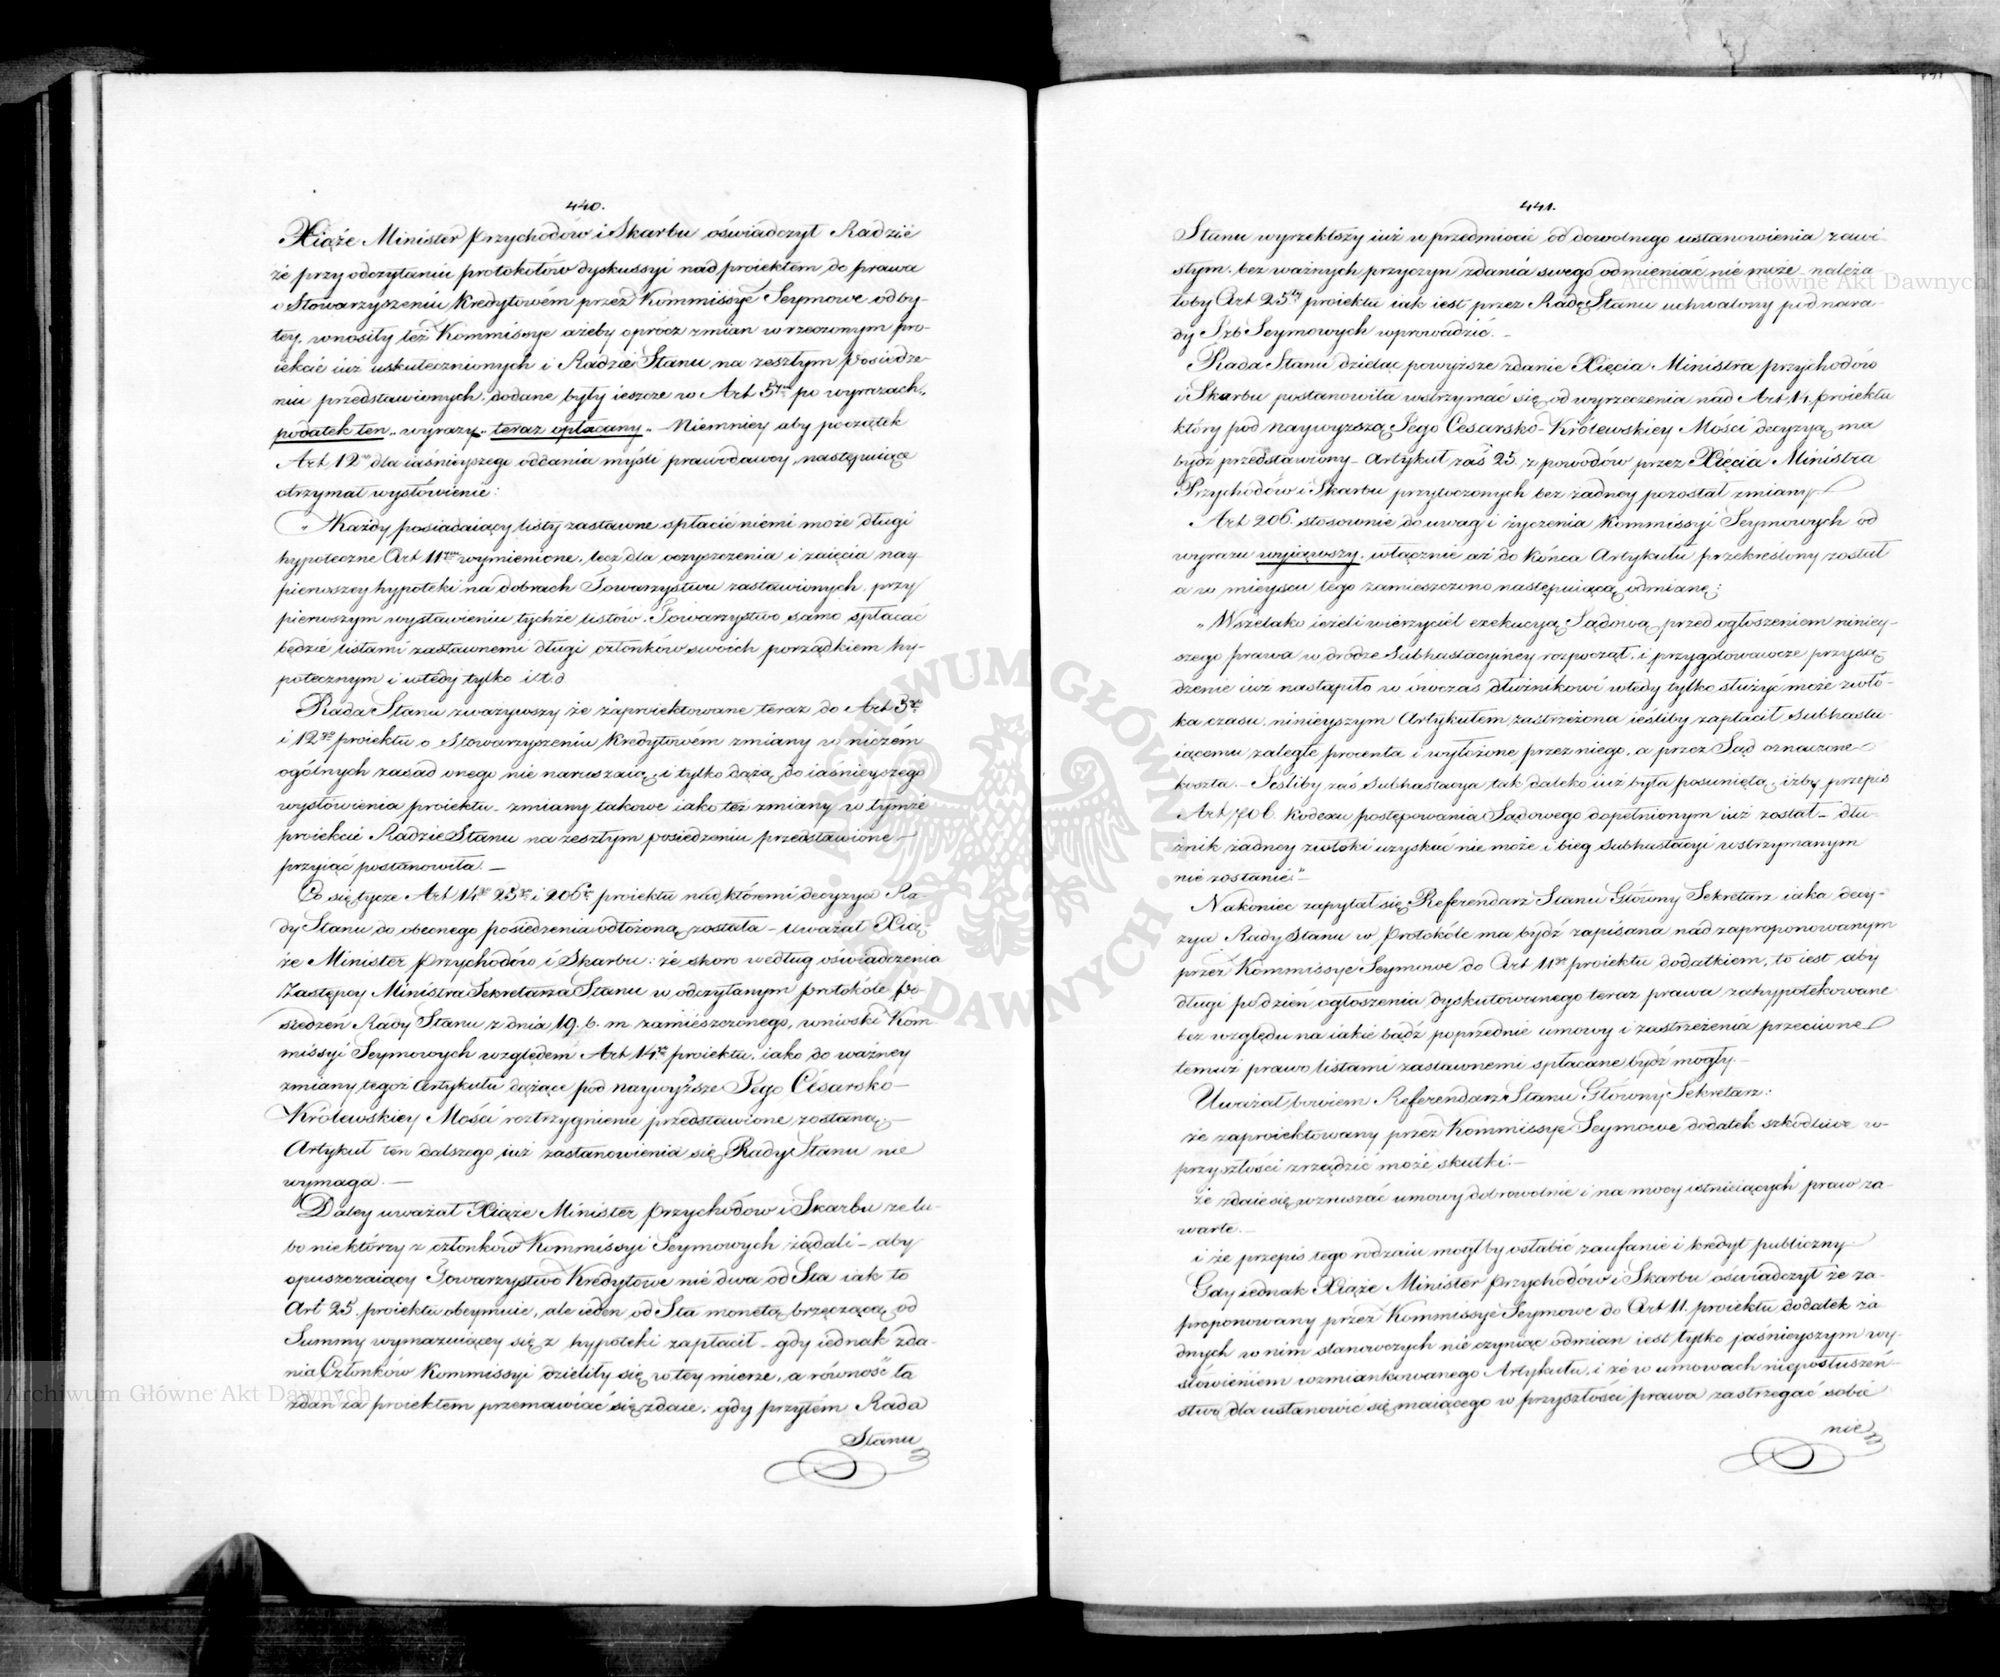 440.
Xiąże Minister Przychodów i Skarbu oświadczył Radzie
że przy odczytaniu protokołów dyskussyi nad proiektem do prawa
o Stowarzyszeniu Kredytowém przez Kommissye Seymowe odby-
tey, wnosiły też Kommissye ażeby oprócz zmian w rzeczonym pro-
iekcie iuż uskutecznionych i Radzie Stanu na zeszłym posiedze-
niu przedstawionych, dodane były ieszcze w Art 5tym po wyrazach„
podatek ten„ wyrazy„ teraz opłacany„ – Niemniey aby początek
Art 12go dla iaśnieyszego oddania myśli prawodawcy, następuiące
otrzymał wysłówienie:
„Każdy posiadaiący listy zastawne spłacić niemi może długi
hypoteczne Art 11tym wymienione, lecz dla oczyszczenia i zaięcia nay-
pierwszey hypoteki na dobrach Towarzystwu zastawionych, przy
pierwszym wystawieniu tychże listów, Towarzystwo samo spłacać
będzie listami zastawnemi długi członków swoich porządkiem hy-
potecznym i wtedy tylko i t. d.
Rada Stanu zważywszy że zaproiektowane teraz do Art 5go
i 12go proiektu o Stowarzyszeniu Kredytowém zmiany w niczém
ogólnych zasad onego nie naruszaią, i tylko dążą do iaśnieyszego
wysłówienia proiektu – zmiany takowe iako też zmiany w tymże
proiekcie Radzie Stanu na zeszłym posiedzeniu przedstawione –
przyiąć postanowiła. –
Co się tycze Art 14go 25go i 206go proiektu nad któremi decyzya Ra-
dy Stanu do obecnego posiedzenia odłożoną została – uważał Xią-
że Minister Przychodów i Skarbu: że skoro według oświadczenia
Zastępcy Ministra Sekretarza Stanu w odczytanym protokóle po-
siedzeń Rady Stanu z dnia 19. b. m. zamieszczonego, wnioski Kom-
missyi Seymowych względem Art 14go proiektu, iako do ważney
zmiany tegoż Artykułu dążące pod naywyższe Jego Césarsko –
Królewskiey Mości roztrzygnienie przedstawione zostaną; –
Artykuł ten dalszego iuż zastanowienia się Rady Stanu nie
wymaga. –
Daley uważał Xiąże Minister Przychodów i Skarbu że lu-
bo niektórzy z członków Kommissyi Seymowych żądali – aby
opuszczaiący Towarzystwo Kredytowe nie dwa od Sta iak to
Art 25. proiektu obeymuie, ale ieden od Sta monetą brzęczącą od
Summy wymazuiącey się z hypoteki zapłacił – gdy iednak zda-
nia Członków Kommissyi dzieliły się w tey mierze, a równość ta
zdań za proiektem przemawiać się zdaie; gdy przytém Rada
Stanu
441.
Stanu wyrzekłszy iuż w przedmiocie od dowolnego ustanowienia zawi-
słym, bez ważnych przyczyn zdania swego odmieniać nie może – należa-
łoby Art 25ty proiektu iak iest przez Radę Stanu uchwalony pod nara-
dy Izb Seymowych wprowadzić. –
Rada Stanu dzieląc powyższe zdanie Xięcia Ministra przychodów
i Skarbu postanowiła wstrzymać się od wyrzeczenia nad Art 14. proiektu
który pod naywyższą Jego Césarsko-Królewskiey Mości decyzyą ma
bydź przedstawiony – Artykuł zaś 25. z powodów przez Xięcia Ministra
Przychodów i Skarbu przytoczonych bez żadney pozostał zmiany –
Art 206. stosownie do uwag i życzenia Kommissyi Seymowych od
wyrazu wyiąwszy, włącznie aż do końca Artykułu przekreślony został
a w mieyscu tego zamieszczono następuiącą odmianę:
„Wszelako ieżeli wierzyciel exekucyą Sądową przed ogłoszeniem niniey-
szego prawa w drodze Subhastacyiney rozpoczął, i przygotowawcze przysą-
dzenie iuż nastąpiło w ówczas dłużnikowi wtedy tylko służyć może zwłó-
ka czasu, ninieyszym Artykułem zastrzeżona ieśliby zapłacił Subhastu-
iącemu zaległe procenta i wyłożone przez niego, a przez Sąd oznaczone
koszta. – Jeśliby zaś Subhastacya tak daleko iuż była posunięta, iżby przepis
Art 706. Kodexu postępowania Sądowego dopełnionym iuż został – dłu-
żnik żadney zwłoki uzyskać nie może i bieg Subhastacyi wstrzymanym
nie zostanie.” –
Nakoniec zapytał się Referendarz Stanu Główny Sekretarz iaka decy-
zya Rady Stanu w Protokóle ma bydź zapisana nad zaproponowanym
przez Kommissye Seymowe do Art 11go proiektu dodatkiem, to iest aby
długi po dzień ogłoszenia dyskutowanego teraz prawa zahypotekowane
bez względu na iakie bądź poprzednie umowy i zastrzeżenia przeciwne
temuż prawo listami zastawnemi spłacane bydź mogły. –
Uważał bowiem Referendarz Stanu Główny Sekretarz:
że zaproiektowany przez Kommissye Seymowe dodatek szkodliwe w
przyszłości zrządzić może skutki: –
że zdaie się wzruszać umowy dobrowolnie i na mocy istnieiących praw za-
warte. –
i że przepis tego rodzaiu mogłby osłabić zaufanie i kredyt publiczny –
Gdy iednak Xiąże Minister Przychodów i Skarbu oświadczył że za-
proponowany przez Kommissye Seymowe do Art 11. proiektu dodatek ża-
dnych w nim stanowczych nie czyniąc odmian iest tylko jaśnieyszym wy-
słówieniem wzmiankowanego Artykułu, i że w umowach nieposłuszeń-
stwo dla ustanowić się maiącego w przyszłości prawa zastrzegać sobie
nie